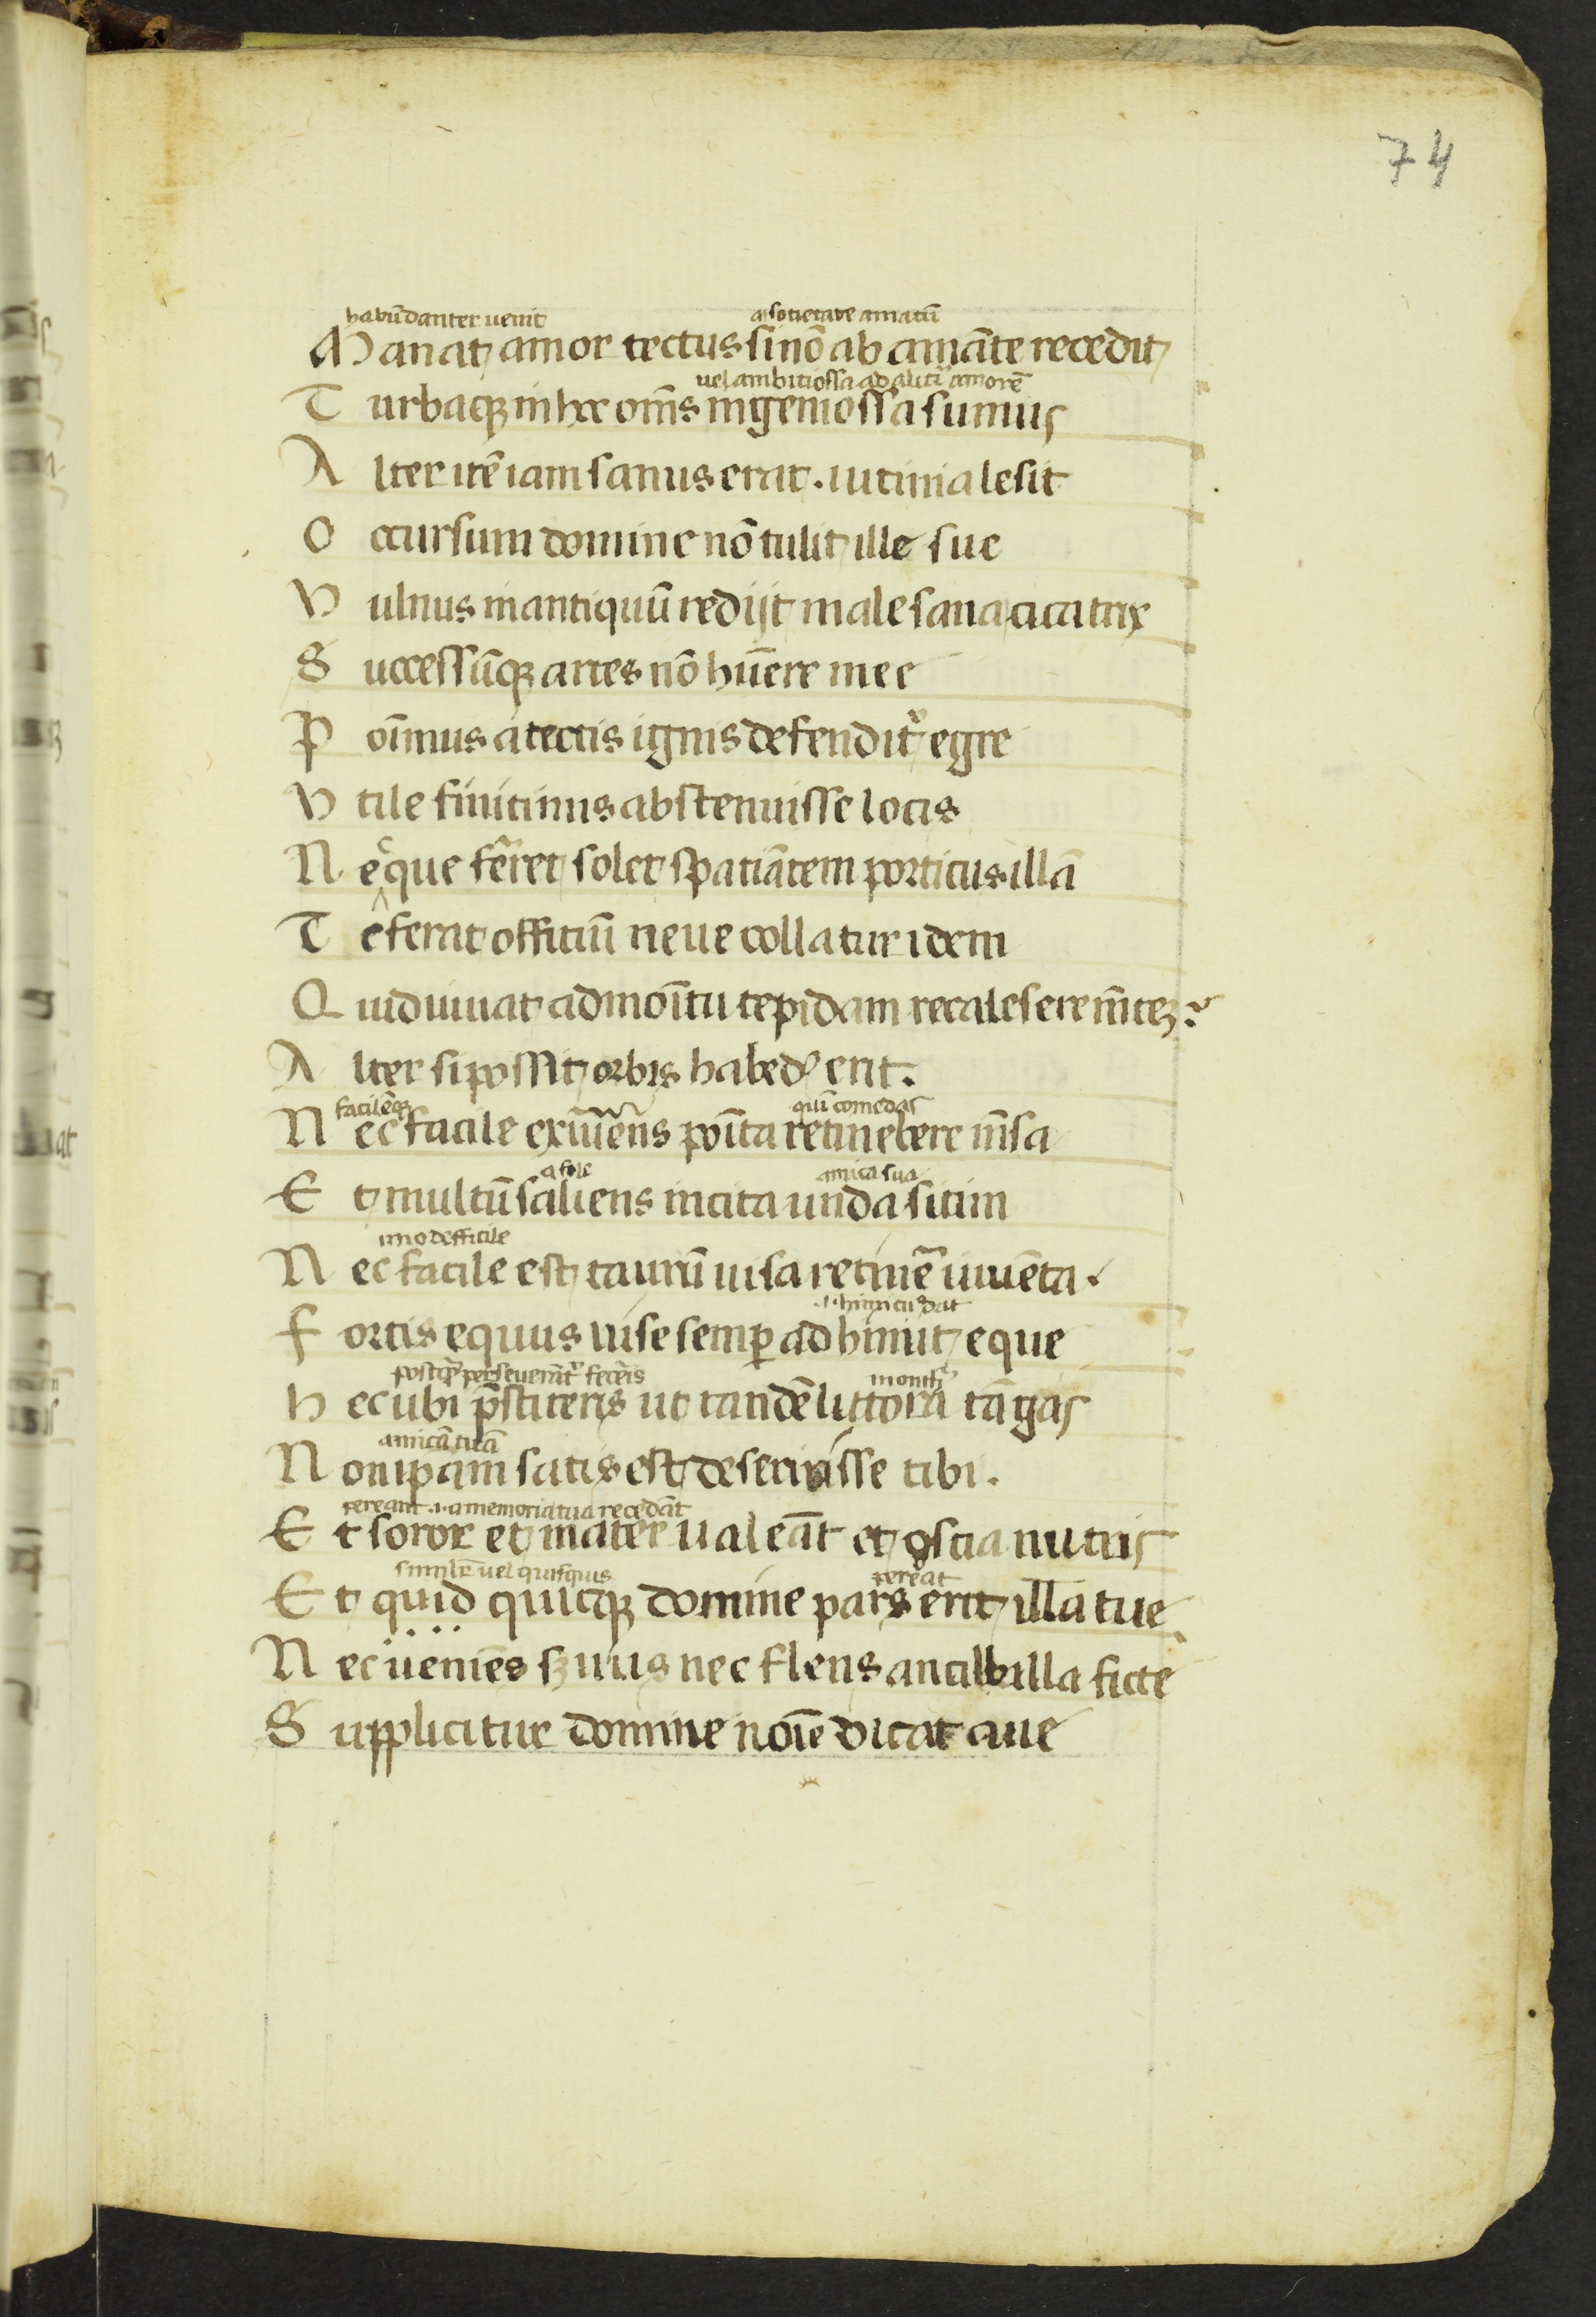 74
habūdanter uenit a sotietate amatū
Manat amor tectus si nō ab amāte recedit
uel ambitiossa ad alicuiꝰ amorē
Turbaqꝫ in hec om̄s ingeniossa sumus
Alter itē iam sanus erat . uitinia lesit
Occursum domine nō tulit ille sue
Vulnus in antiquū redijt male sana cicatrix
Successūqꝫ artes nō hūere mee
Poīmus a tectis ignis defendit᷑ egre
Vtile finitimis abstenuisse locis
Nec que fērer solet spatiātem porticus illā
Te ferat offitiū neue collatur idem
Quid iuuat admoītu tepidam recalesere m̄teꝫ?
Alter si possit orbis habēdꝰ erit.
facilēqꝫ quī comedas
Nec facile exuūens poīta retinebere m̄sa
a sole amica sua
Et multū saliens incita unda sitim
imo defficile
Nec facile est taurū uisa retinē iuuēta.
.i. himitū dat
Fortis equus uise semꝑ ad hiniut eque
postꝗ̄ perseuerāt᷑ feceris montꝫ
Hec ubi p̄stiteris ut tandē littora tāgas
amicā tuā
Non ip̄am satis est deseruisse tibi.
pereant .i. a memoria tua recedāt
Et soror et mater ualeāt et oscia nutris
similr̄ uel quisquis pereat
Et quid quicqꝫ domine pars erit illa tue
Nec ueniēs ẜuus nec flens ancillulla ficte
Supplicitur domine noīe dicat aue